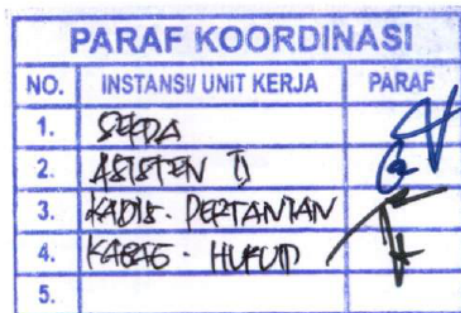 PARAF KOORDINASI
NO. INSTANSI/ UNIT KERJA PARAF
1. SEKDA
2. ASISTEN II
3. KADIS. PERTANIAN
4. KABAG. HUKUM
5.